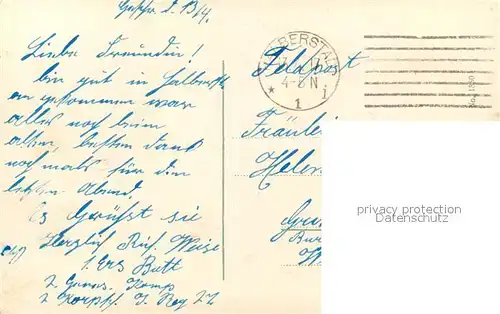 Geschr. d. 13/4.
Liebe Freundin!
bin gut in Halberst.
an gekommen war
alles noch beim
alten, besten Dank
noch mals für den
letzten Abend.
Es Grüßt sie
Herzlich Rich. Weise
1. Ers Batl
2. Genes. Komp
2 Korpsch. I. Reg 27
HALBERSTADT
17
4-5 N
* 1 i
Feldpost
Fräulein
Helen
privacy protection
Datenschutz